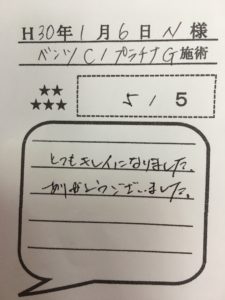 H30年1月6日N様
ベンツC/プラチナG施術
★★
★★★
5/5
とてもキレイになりました。
ありがとうございました。